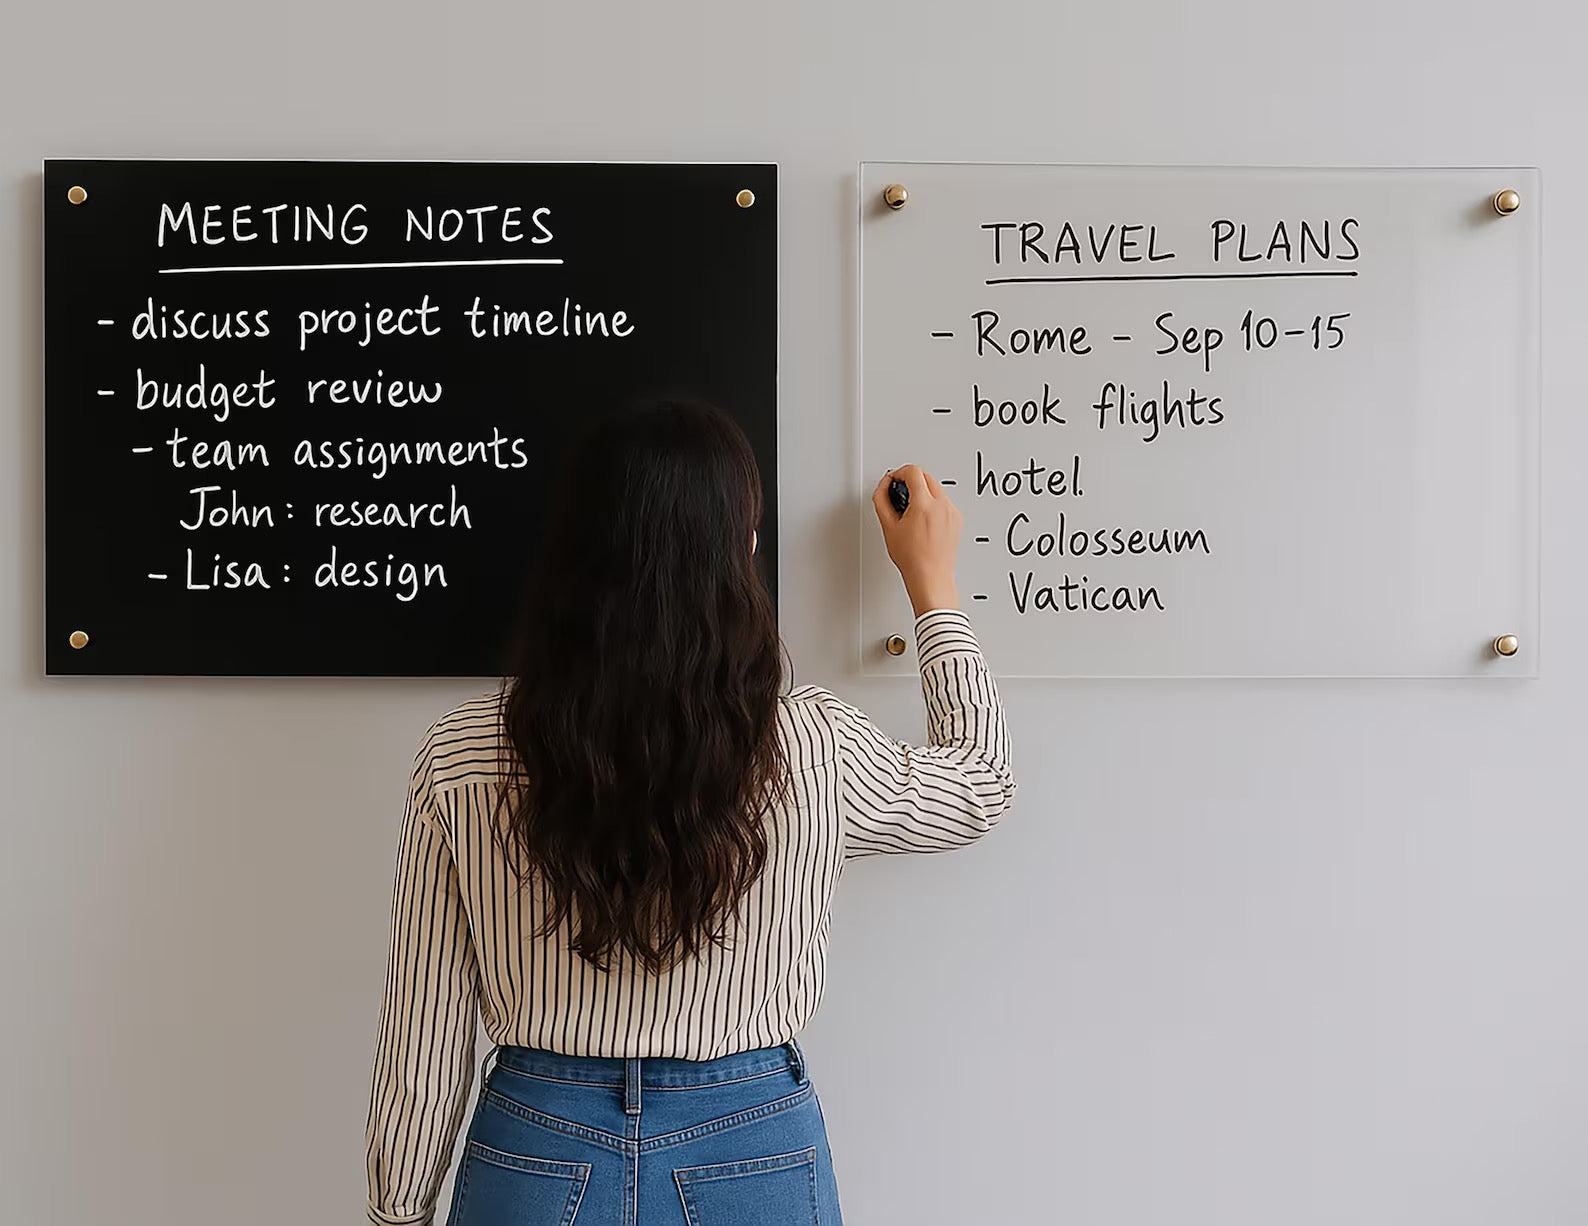 MEETING NOTES
- discuss project timeline
- budget review
- team assignments
John: research
- Lisa: design
TRAVEL PLANS
- Rome - Sep 10-15
- book flights
- hotel.
- Colosseum
- Vatican